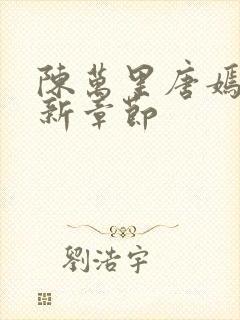 陳萬里唐嫣
新章節
劉浩宇